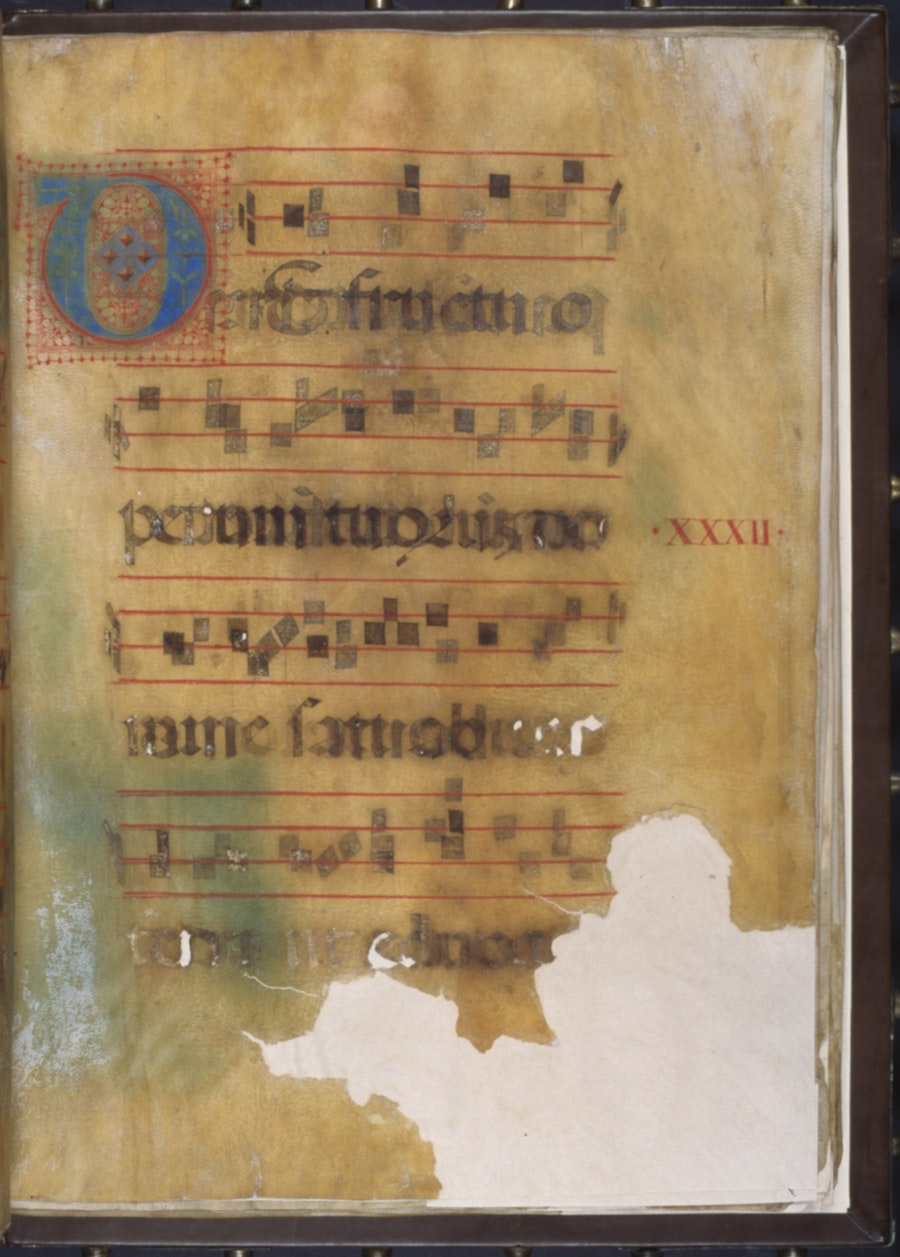 De fructu o
perum tuoꝝ do
mine satiabitur
terra ut educa
·XXXII·